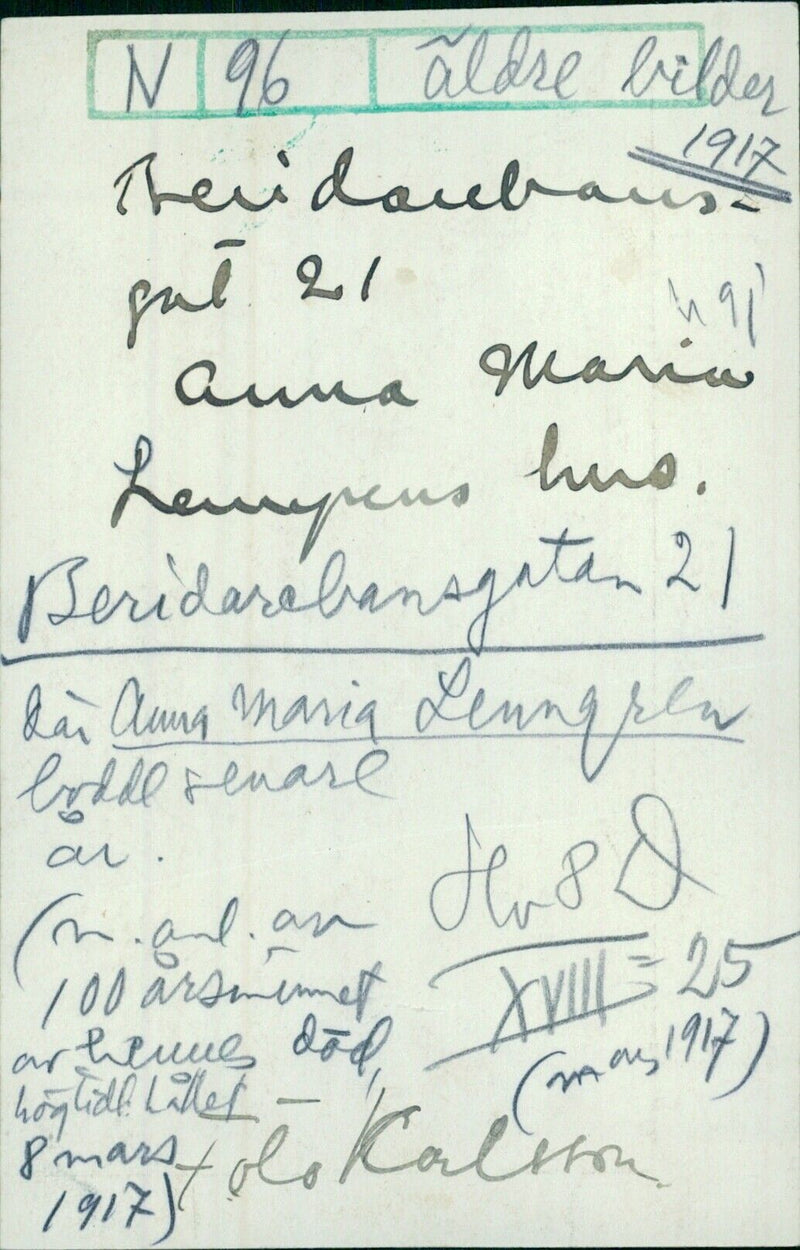 N 96 äldre bilder
1917
Beridarebans-
gat. 21
N 91
Anna Maria
Lenngrens hus.
Beridarebansgatan 21
där Anna Maria Lenngren
bodde senare
år.
(m. anl. av
100 årsminnet
av hennes död,
högtidl. hållet
8 mars
1917)
Hv 8 D
XVIII = 25
(mars 1917)
foto Karlsson